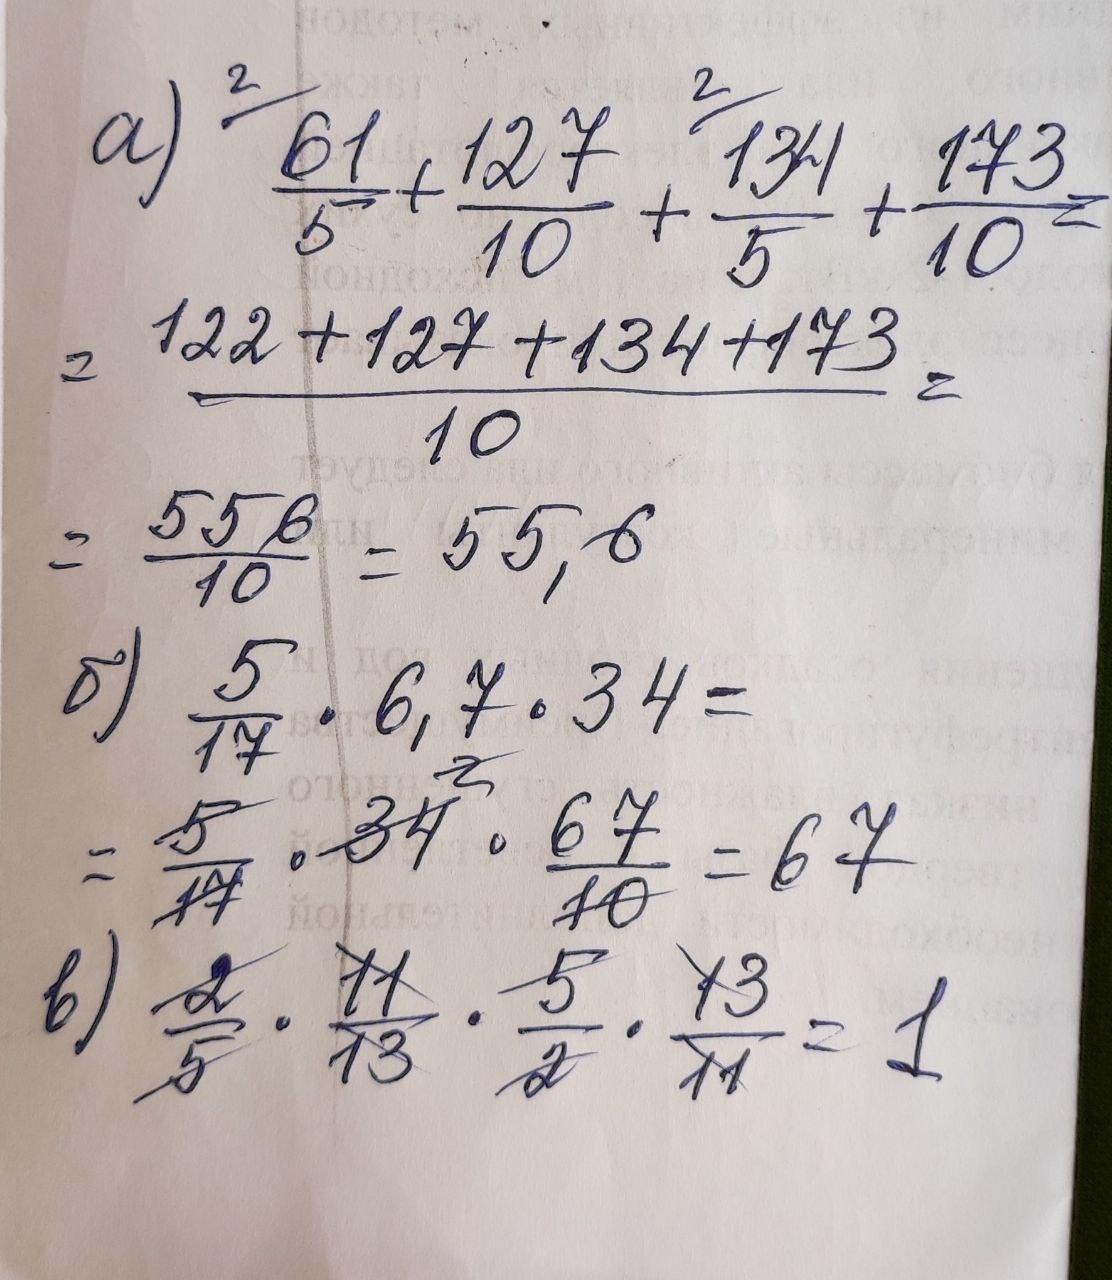 а) ²/ 61/5 + 127/10 + ²/ 134/5 + 173/10 =
= (122 + 127 + 134 + 173)/10 =
= 556/10 = 55,6
б) 5/17 · 6,7 · 34 =
= 5/17 · 34 ² · 67/10 = 67
в) 2/5 · 11/13 · 5/2 · 13/11 = 1